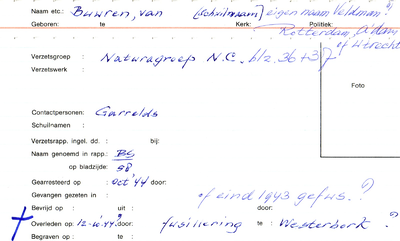 Naam etc.: Buuren, van (Schuilnaam) eigen naam Veldman?)
Geboren: te Kerk: Politiek:
Rotterdam, A'dam
of Utrecht
Verzetsgroep : Naturagroep N.C. blz. 36+37
Verzetswerk :
Foto
Contactpersonen: Garrelds
Schuilnaam :
Verzetsrapp. ingel. dd. : bij:
Naam genoemd in rapp.: BS
op bladzijde: 58
Gearresteerd op : oct '44 door:
Gevangen gezeten in : of eind 1943 gefus.?
Bevrijd op : uit : door:
Overleden op: door: fusillering te : Westerbork ?
Begraven op : te :